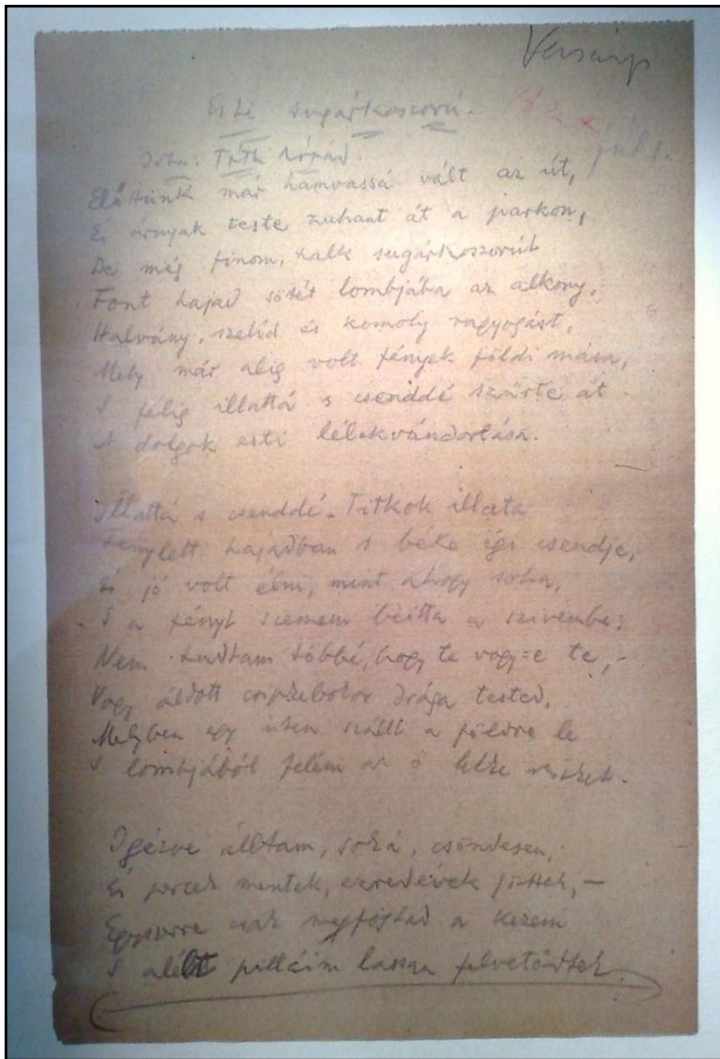 Esti sugárkoszorú.
Irta: Tóth Árpád.
Előttünk már hamvassá vált az út,
És árnyak teste zuhant át a parkon,
De még finom, halk sugárkoszorút
Font hajad sötét lombjába az alkony,
Halvány, szelíd és komoly ragyogást,
Mely már alig volt fények földi mása,
S félig illattá s csenddé szűrte át
A dolgok esti lélekvándorlása.
Illattá s csenddé. Titkok illata
Fénylett hajadban s béke égi csendje,
És jó volt élni, mint ahogy soha,
S a fényt szemem beitta a szivembe:
Nem tudtam többé, hogy te vagy-e te,-
Vagy áldott csipkebokor drága tested,
Melyben egy isten szállt a földre le
S lombjából felém az ő lelke reszket.
Igézve álltam, soká, csöndesen,
És percek mentek, ezredévek jöttek, –
Egyszerre csak megfogtad a kezem
S alélt pilláim lassan felvetődtek.